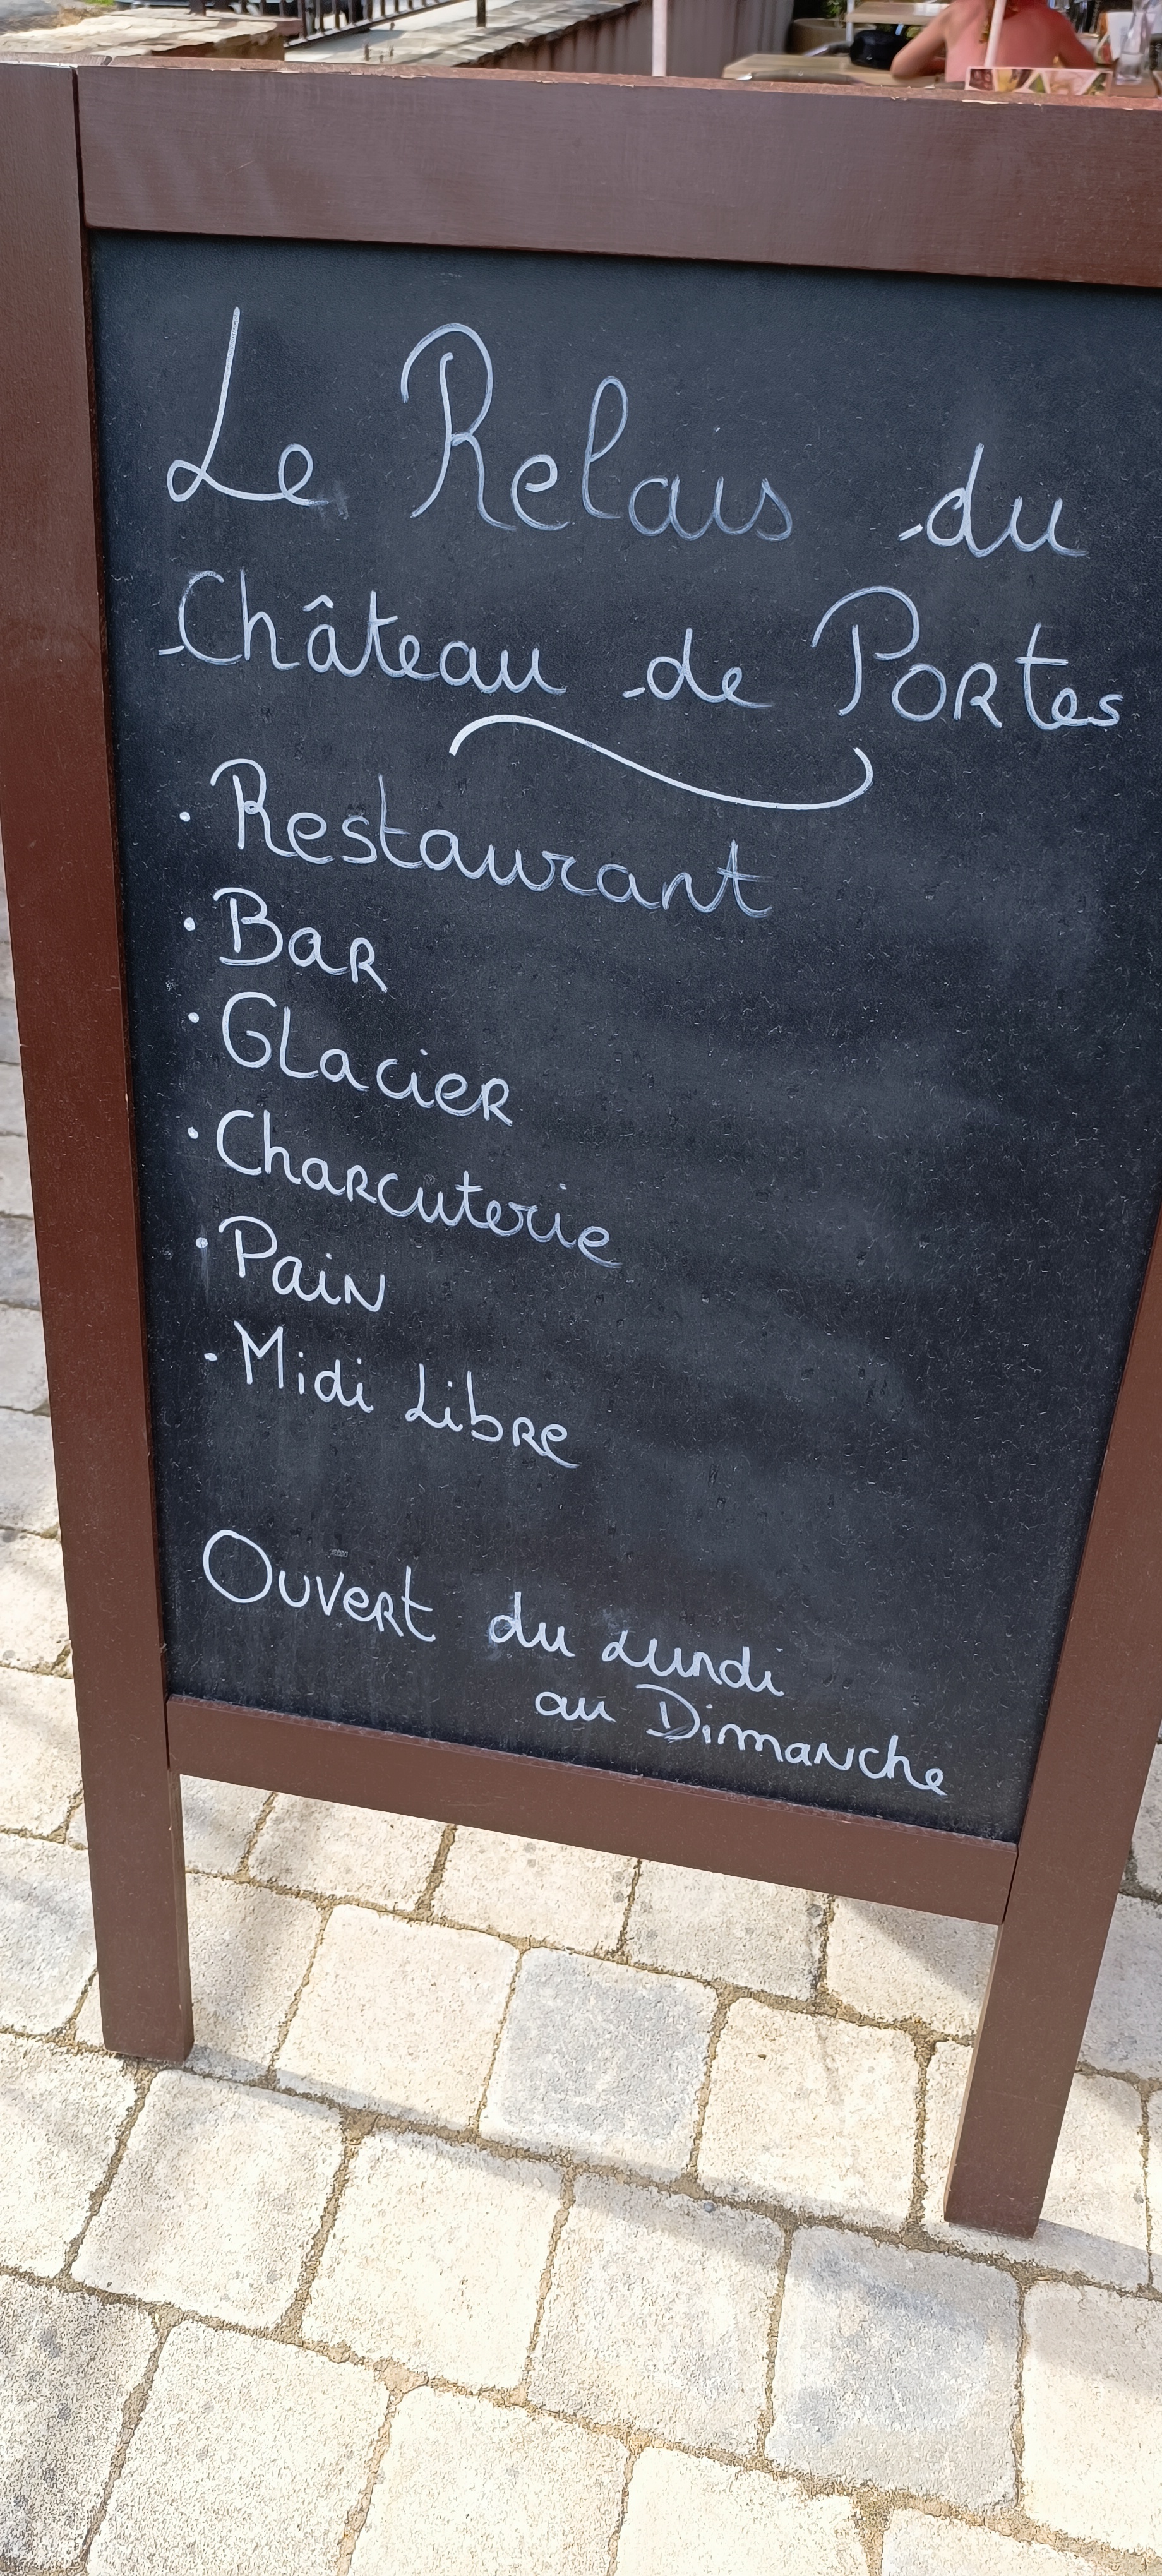 Le Relais du
Château de Portes
· Restaurant
· Bar
· Glacier
· Charcuterie
· Pain
· Midi Libre
Ouvert du Lundi
au Dimanche